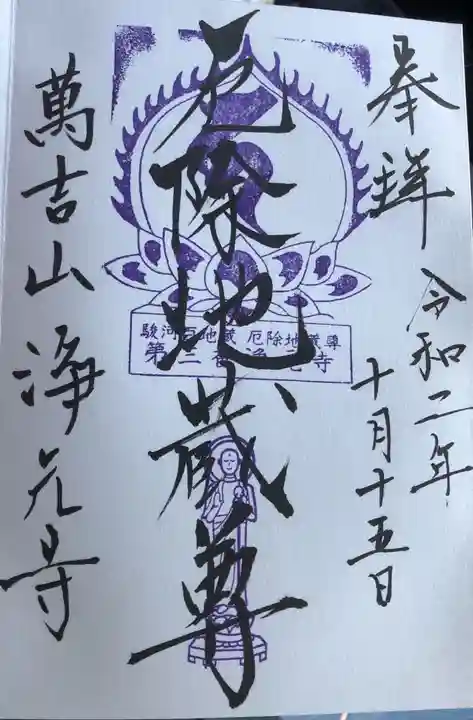 奉拝
令和二年
十月十五日
厄除地蔵尊
駿河百地蔵 厄除地蔵尊
第 寺
萬吉山 淨元寺